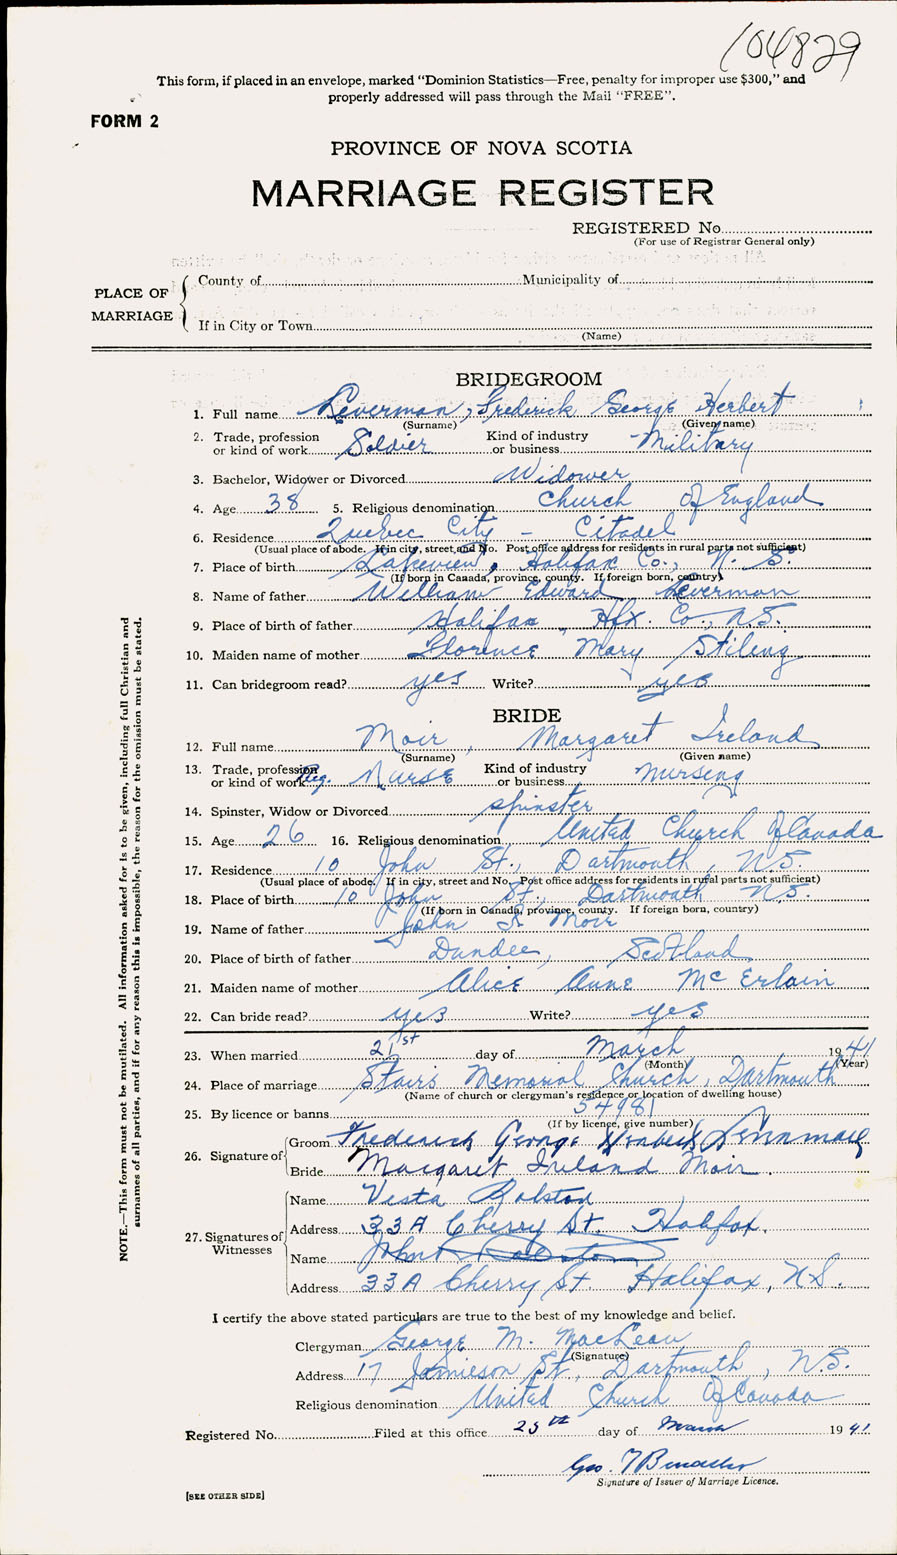 104829
This form, if placed in an envelope, marked "Dominion Statistics—Free, penalty for improper use $300," and
properly addressed will pass through the Mail "FREE".
FORM 2
PROVINCE OF NOVA SCOTIA
MARRIAGE REGISTER
REGISTERED No.
(For use of Registrar General only)
PLACE OF MARRIAGE
County of Municipality of
If in City or Town
(Name)
BRIDEGROOM
1. Full name Leverman, Frederick George Herbert
(Surname) (Given name)
2. Trade, profession or kind of work Soldier Kind of industry or business Military
3. Bachelor, Widower or Divorced Widower
4. Age 38 5. Religious denomination Church of England
6. Residence Quebec City - Citadel
(Usual place of abode. If in city, street and No. Post office address for residents in rural parts not sufficient)
7. Place of birth Lakeview, Halifax Co., N. S.
(If born in Canada, province, county. If foreign born, country)
8. Name of father William Edward Leverman
9. Place of birth of father Halifax, Hfx. Co., N.S.
10. Maiden name of mother Florence Mary Stiling
11. Can bridegroom read? yes Write? yes
BRIDE
12. Full name Moir, Margaret Ireland
(Surname) (Given name)
13. Trade, profession or kind of work Reg. Nurse Kind of industry or business nursing
14. Spinster, Widow or Divorced spinster
15. Age 26 16. Religious denomination United Church Of Canada
17. Residence 10 John St., Dartmouth, N.S.
(Usual place of abode. If in city, street and No. Post office address for residents in rural parts not sufficient)
18. Place of birth 10 John St., Dartmouth N.S.
(If born in Canada, province, county. If foreign born, country)
19. Name of father John S. Moir
20. Place of birth of father Dundee, Scotland
21. Maiden name of mother Alice Anne McErlain
22. Can bride read? yes Write? yes
23. When married 21st day of March 1941
(Month) (Year)
24. Place of marriage Stairs Memorial Church, Dartmouth
(Name of church or clergyman's residence or location of dwelling house)
25. By licence or banns 54981
(If by licence, give number)
26. Signature of Groom Frederick George Herbert Leverman
Bride Margaret Ireland Moir.
27. Signatures of Witnesses
Name Vesta Rolston
Address 33A Cherry St. Halifax.
Name John Rolston
Address 33A Cherry St. Halifax, N.S.
I certify the above stated particulars are true to the best of my knowledge and belief.
Clergyman George M. MacLean
(Signature)
Address 17 Jamieson St, Dartmouth, N.S.
Religious denomination United Church Of Canada
Registered No. Filed at this office 25th day of March 1941.
Geo.
Signature of Issuer of Marriage Licence.
[SEE OTHER SIDE]
NOTE.—This form must not be mutilated. All information asked for is to be given, including full Christian and
surnames of all parties, and if for any reason this is impossible, the reason for the omission must be stated.